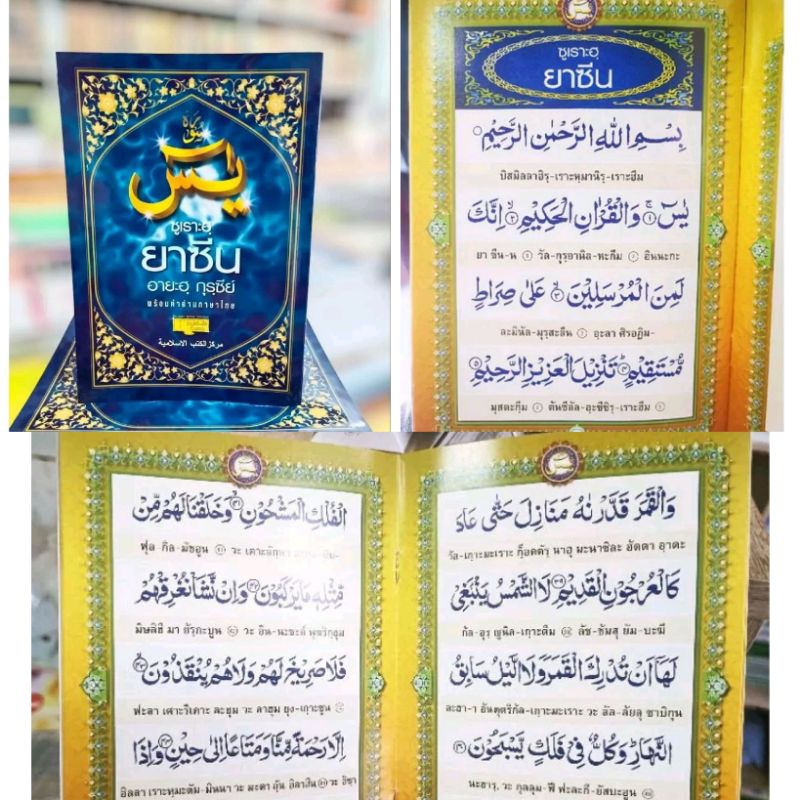 سُورَة
يٰسٓ
ซูเราะฮฺ
ยาซีน
อายะฮฺ กุรฺซีย์
พร้อมคำอ่านภาษาไทย
مركز الكتب الاسلامية
ซูเราะฮฺ
ยาซีน
بِسْمِ اللهِ الرَّحْمٰنِ الرَّحِيْمِ
บิสมิลลาฮิรฺ-เราะหฺมานิรฺ-เราะฮีม
يٰسٓ ۚ ﴿١﴾ وَالْقُرْاٰنِ الْحَكِيْمِ ۙ ﴿٢﴾ اِنَّكَ
ยา ซีน-น ① วัล-กุรฺอานิล-หะกีม ② อินนะกะ
لَمِنَ الْمُرْسَلِيْنَ ۙ ﴿٣﴾ عَلٰى صِرَاطٍ
ละมินัล-มุรฺสะลีน ③ อะลา ศิรอฏิม-
مُّسْتَقِيْمٍ ؕ ﴿٤﴾ تَنْزِيْلَ الْعَزِيْزِ الرَّحِيْمِ ۙ ﴿٥﴾
มุสตะกีม ④ ตันซีลัล-อะซีซิรฺ-เราะฮีม ⑤
الْفُلْكِ الْمَشْحُوْنِ ۙ ﴿٤١﴾ وَخَلَقْنَا لَهُمْ مِّنْ
ฟุล-กิล-มัชฮูน ④① วะ เคาะลักนา
مِّثْلِهٖ مَا يَرْكَبُوْنَ ﴿٤٢﴾ وَاِنْ نَّشَاْ نُغْرِقْهُمْ
มิษลิฮี มา ยัรฺกะบูน ④② วะ อิน-นะชะอ์ นุฆริกฮุม
فَلَا صَرِيْخَ لَهُمْ وَلَا هُمْ يُنْقَذُوْنَ ۙ ﴿٤٣﴾
ฟะลา เศาะรีเคาะ ละฮุม วะ ลาฮุม ยุง-เกาะซูน
اِلَّا رَحْمَةً مِّنَّا وَمَتَاعًا اِلٰى حِيْنٍ ﴿٤٤﴾ وَاِذَا
อิลลา เราะหฺมะตัม-มินนา วะ มะตาอัน อิลาฮีน ④④ วะ อิซา
وَالْقَمَرَ قَدَّرْنٰهُ مَنَازِلَ حَتّٰى عَادَ
วัล-เกาะมะเราะ ก็อดดัรฺ นาฮุ มะนาซิละ ฮัตตา อาดะ
كَالْعُرْجُوْنِ الْقَدِيْمِ ﴿٣٩﴾ لَا الشَّمْسُ يَنْبَغِيْ
กัล-อุรฺ ญูนิล-เกาะดีม ③⑨ ลัช-ชัมสุ ยัม-บะฆี
لَهَآ اَنْ تُدْرِكَ الْقَمَرَ وَلَا الَّيْلُ سَابِقُ
ละฮา-า อันตุดริกัล-เกาะมะเราะ วะ ลัล-ลัยลุ ซาบิกุน
النَّهَارِ ؕ وَكُلٌّ فِيْ فَلَكٍ يَّسْبَحُوْنَ ﴿٤٠﴾
นะฮารฺ, วะ กุลลุม-ฟี ฟะละกี-ยัสบะฮูน ④⓪